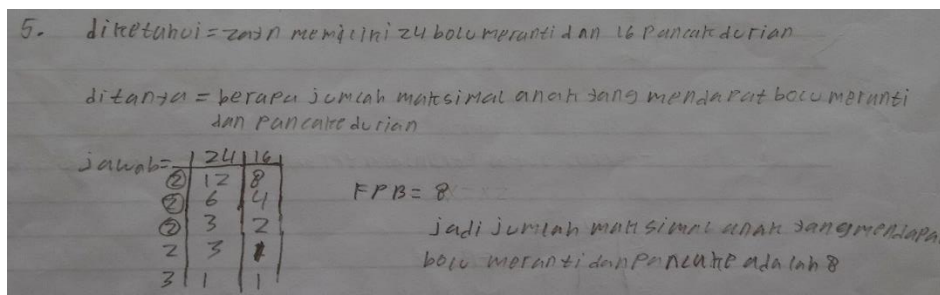 5. diketahui = zain memiliki 24 bolu meranti dan 16 Pancake durian
ditanya = berapa jumlah maksimal anak yang mendapat bolu meranti
dan pancake durian
jawab = | 24 | 16 |
② | 12 | 8
② | 6 | 4
② | 3 | 2
2 | 3 | 1
3 | 1 | 1
FPB = 8
jadi jumlah maksimal anak yang mendapa
bolu meranti dan Pancake adalah 8